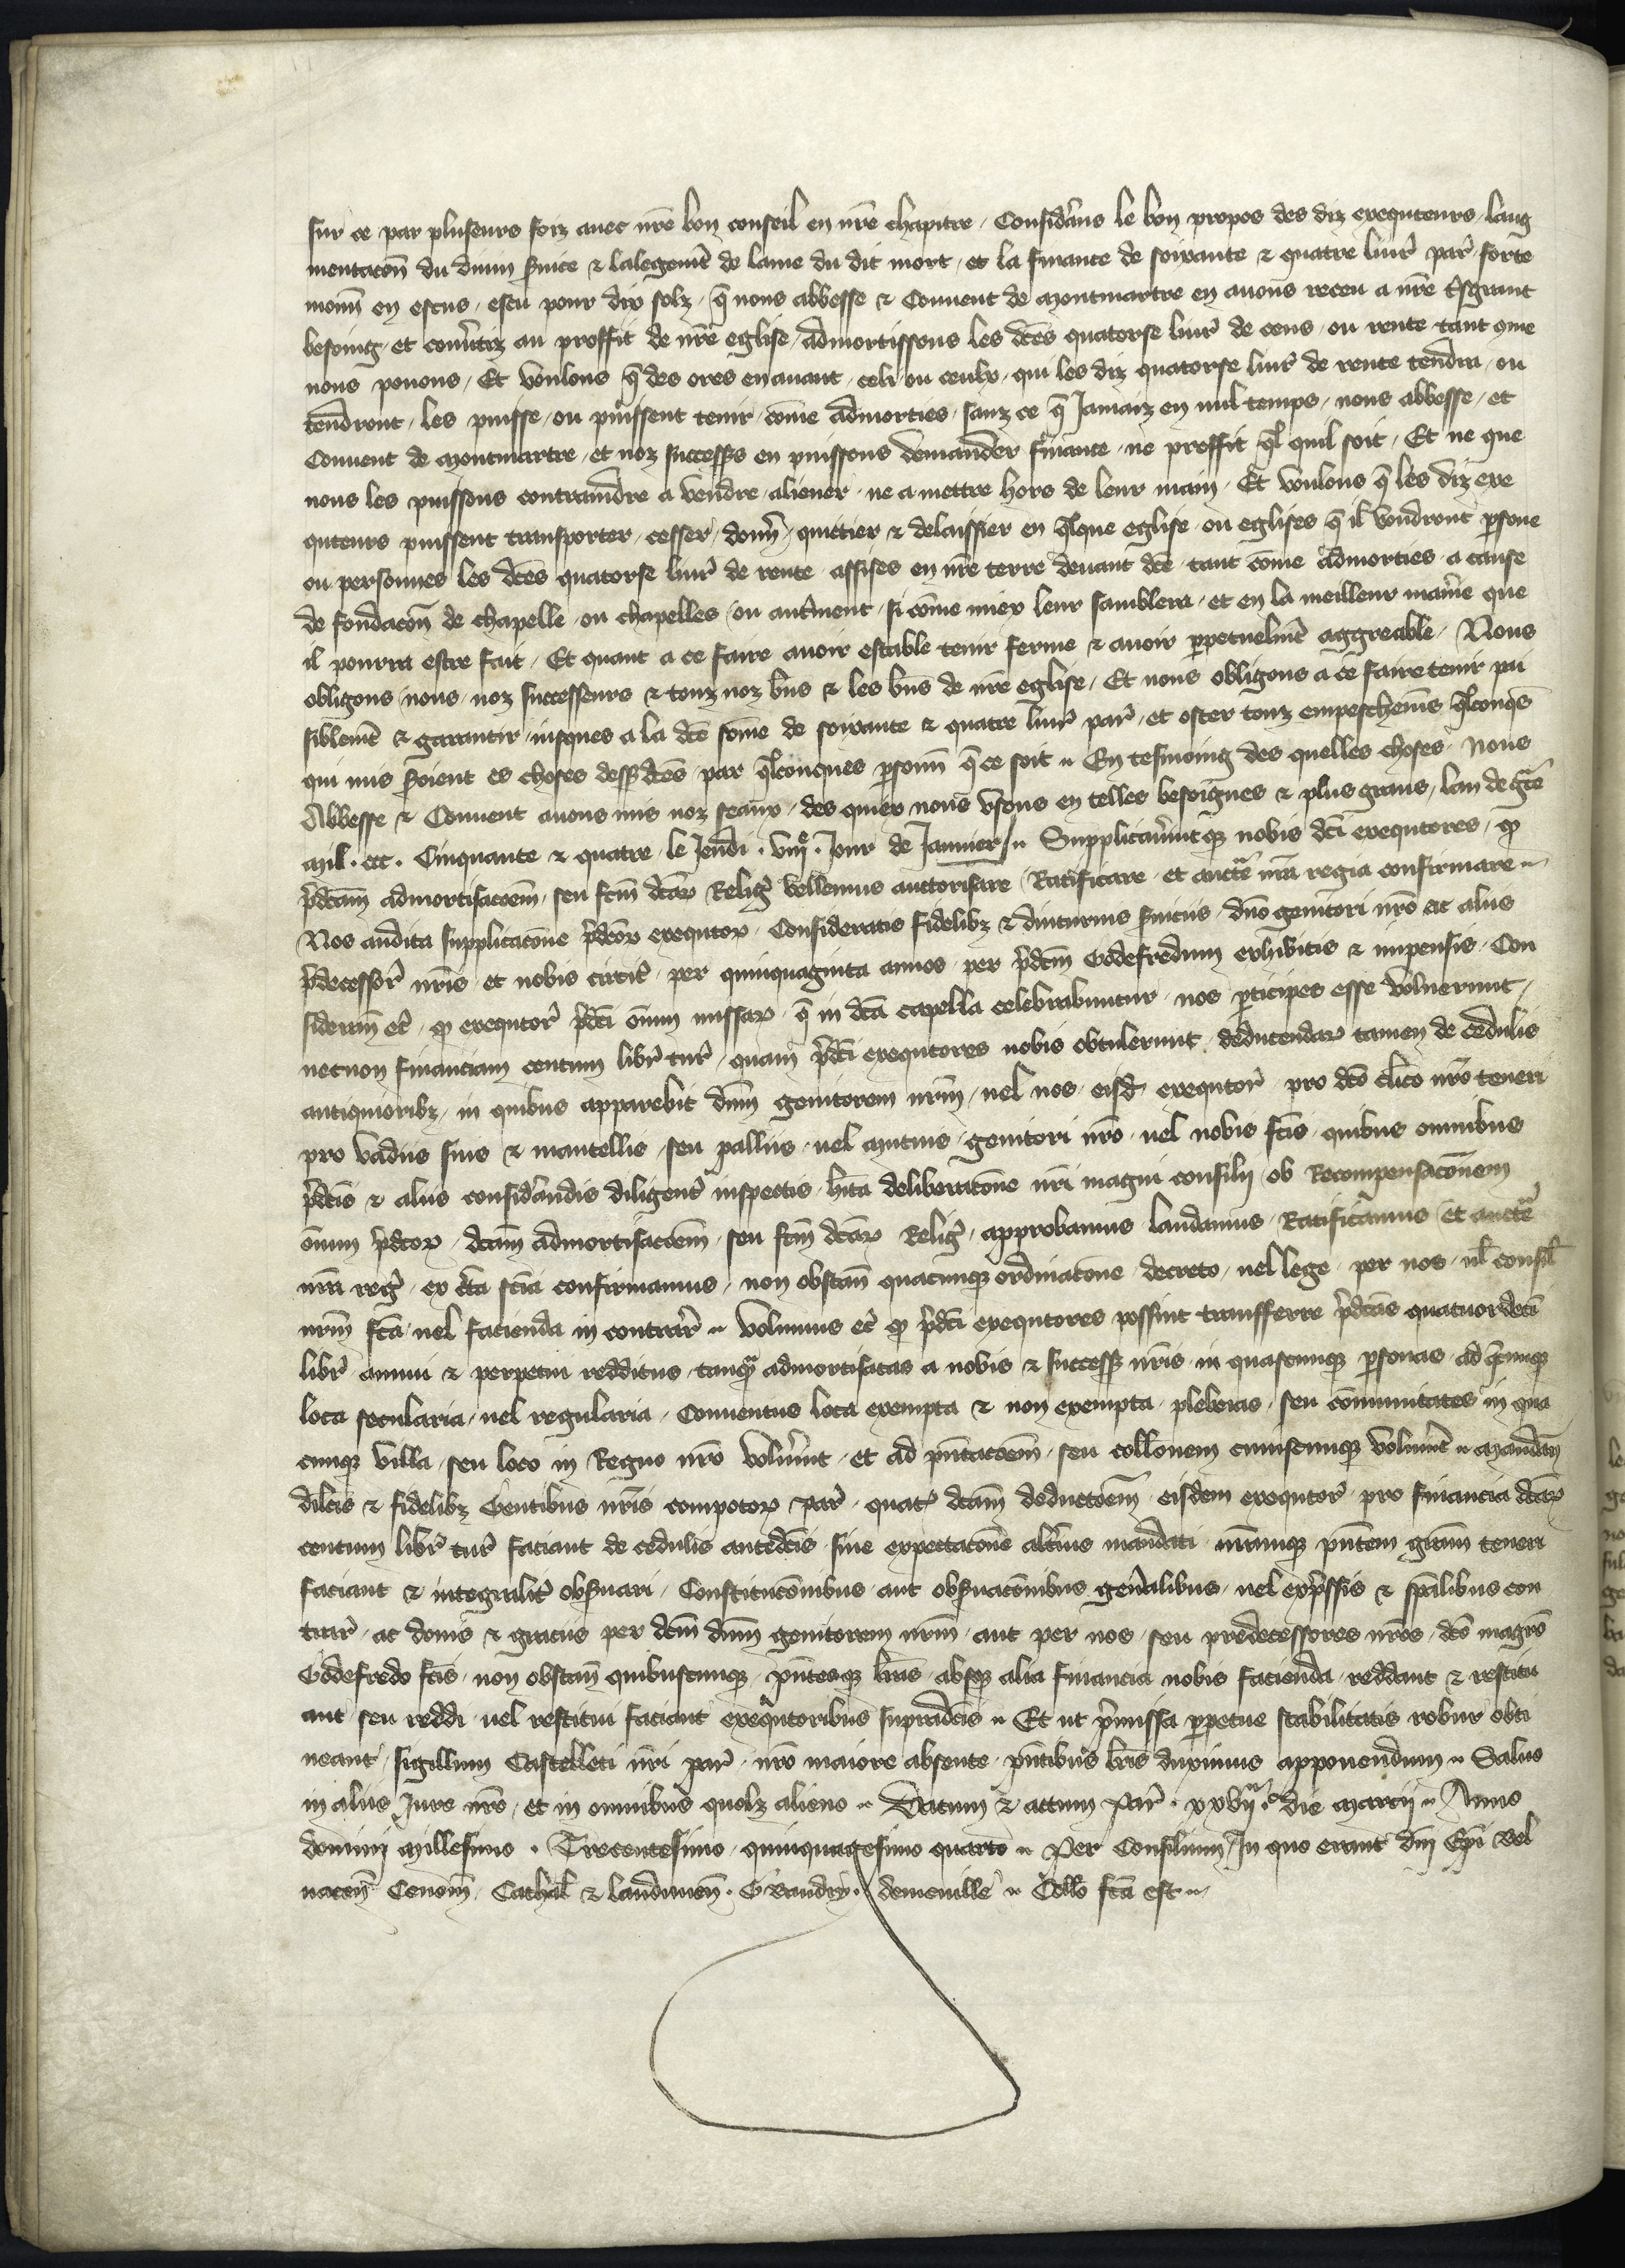 sur ce par pluseurs foiz auec nr̃e bon conseil en nr̃e chapitre / Considr̃ans le bon propos des diz exequteurs laug
mentacõn du diuin ẜuice & lalegemẽt de lame du dit mort / et la finance de soixante & quatre liur̃ par̃ forte
monñ en escus / escu pour dix solz / q̃ nous abbesse & Conuent de Montmartre en auons receu a nr̃e tresgrant
besoing / et conuẽtiz au proffit de nr̃e eglise / Admortissons les dc̃es quatorse liur̃ de cens / ou rente tant que
nous pouons / Et voulons q̃ des ores enauant / celi ou ceulx / qui les diz quatorse liur̃ de rente tendra / ou
tendront / les puisse / ou puissent tenir / cõme admorties / sanz ce q̃ Jamaiz en nul temps / nous abbesse / et
Conuent de Montmartre / et noz success̃s en puissons demander finance / ne proffit q̃l quil soit / Et ne que
nous les puissons contraindre a vendre / aliener / ne a mettre hors de leur main / Et voulons q̃ les diz exe
quteurs puissent transporter / cesser / donñ / quittier & delaissier en q̃lque eglise / ou eglises q̃ il voudront ꝑsone
ou personnes les dc̃es quatorse liur̃ de rente / assises en nr̃e terre deuant dc̃e / tant cõme admorties / a cause
de fondacõn de chapelle / ou chapelles / ou autr̃ment / si cõme miex leur samblera / et en la meilleur manr̃e que
il pourra estre fait / Et quant a ce faire auoir estable tenir ferme & auoir ꝑpetuelmẽt aggreable / Nous
obligons nous / noz successeurs & touz noz bñs & les bñs de nr̃e eglise / Et nous obligons a ce faire tenir pai
siblemẽt & garantir / iusques a la dc̃e sõme de soixante & quatre liur̃ par̃ / et oster touz empeschemẽs q̃lconq̃s
qui mis ẜoient es choses dess̃ dc̃es / par q̃lconques ꝑsonñ q̃ ce soit .. En tesmoing des quelles choses / Nous
Abbesse & Conuent auons mis noz seaux / des quiex nous vsons en telles besoignes & plus grans / lan de gr̃ce
Mil . ccc . Cinquante & quatre / le Jeudi . viijͤ . Jour de Januier // .. Supplicauer̃intq; nobis dc̃i exequtores / ꝙ
p̃dc̃am admortisacõem / seu fc̃m dc̃aꝝ Relig̃ vellemus auctorisare / Ratificare / et aucte nr̃a regia confirmare ..
Nos audita supplicacõne p̃dc̃oꝝ exequtoꝝ / Consideratis fidelibꝫ & diuturnis ẜuiciis / dño genitori nr̃o ac aliis
p̃decessor̃ nr̃is / et nobis circit̃ / per quinquaginta annos / per p̃dc̃m Godefredum exhibitis & impensis / Con
siderañ ec̃ / ꝙ exequtor̃ p̃dc̃i õium missaꝝ / q̃ in dc̃a capella celebrabuntur / nos ꝑticipes esse voluerunt /
necnon financiam centum libr̃ tur̃ / quam p̃dc̃i exequtores nobis obtulerunt / deducendaꝝ tamen de cedulis
antiquioribꝫ / in quibus apparebit dñm genitorem nr̃m / uel nos / eisd̃ exequtor̃ / pro dc̃o clico nr̃o teneri
pro vadiis suis & mantellis / seu palliis / uel mutuis / genitori nr̃o / uel nobis fc̃is / quibus omnibus
p̃dc̃is & aliis considr̃andis diligent̃ inspectis / hĩta deliberacõne nr̃i magni consilij / ob Recompensacõnem
õium p̃dc̃oꝝ / dc̃am admortisacõem / seu fc̃m dc̃aꝝ Relig̃ / approbamus laudamus / Ratificamus / et aucte
nr̃a reg̃ / ex cẽta sc̃ia confirmamus / non obstañ quacunqꝫ ordinacõne / decreto / uel lege / per nos / ul̃ consil̃
nr̃m fc̃a / uel facienda in contrar̃ .. Volumus ec̃ ꝙ p̃dc̃i exequtores possint transferre p̃dc̃as quatuordecĩ
libr̃ annui & perpetui redditus / tanq̃ admortisatas a nobis & success̃ nr̃is / in quascunqꝫ ꝑsonas / ad q̃cunqꝫ
loca secularia / uel regularia / Conuentus loca exempta & non exempta / plebeias / seu cõmunitates in qua
cunqꝫ villa / seu loco in Regno nr̃o voluẽint / et ad pñtacõem / seu collõnem cuiuscunqꝫ voluinẽt .. Mandañ
dilc̃is & fidelibꝫ Gentibus nr̃is compotoꝝ par̃ / quat̃ dc̃am deductõem / eisdem exequtor̃ / pro financia dc̃aꝝ
centum libr̃ tur̃ / faciant de cedulis antedc̃is / sine expectacõne alt̃ius mandati / nr̃amqꝫ pñtem gr̃am teneri
faciant & integralit̃ obẜuari / Constitucõnibus / aut obẜuacõnibus gen̾alibus / uel exp̃ssis & sp̃alibus con
trar̃ / ac donis & graciis per dc̃m dñm genitorem nr̃m / aut per nos / seu predecessores nr̃os / dc̃o magr̃o
Godefredo fc̃is / non obstañ quibuscunqꝫ / pñtesqꝫ lr̃as / absqꝫ alia financia nobis facienda / reddant & restitu
ant / seu reddi / uel restitui faciant exequtoribus supradc̃is .. Et ut p̃missa ꝑpetue stabilitatis robur obti
neant / sigillum Castelleti nr̃i par̃ / nr̃o maiore absente / pñtibus lr̃is duximus apponendum .. Saluo
in aliis Jure nr̃o / et in omnibus quolꝫ alieno .. Datum & actum Par̃ . xxvijᵃ . die Marcij .. Anno
domini Millesimo . Trecentesimo / quinquagesimo quarto .. Per Consilium / In quo erant dñi Ep̃i Bel
uaceñ Cenoñ / Cathal̃ & laudunen̄ . G baudry . / demeuille .. Coll̃o fc̃a est ..